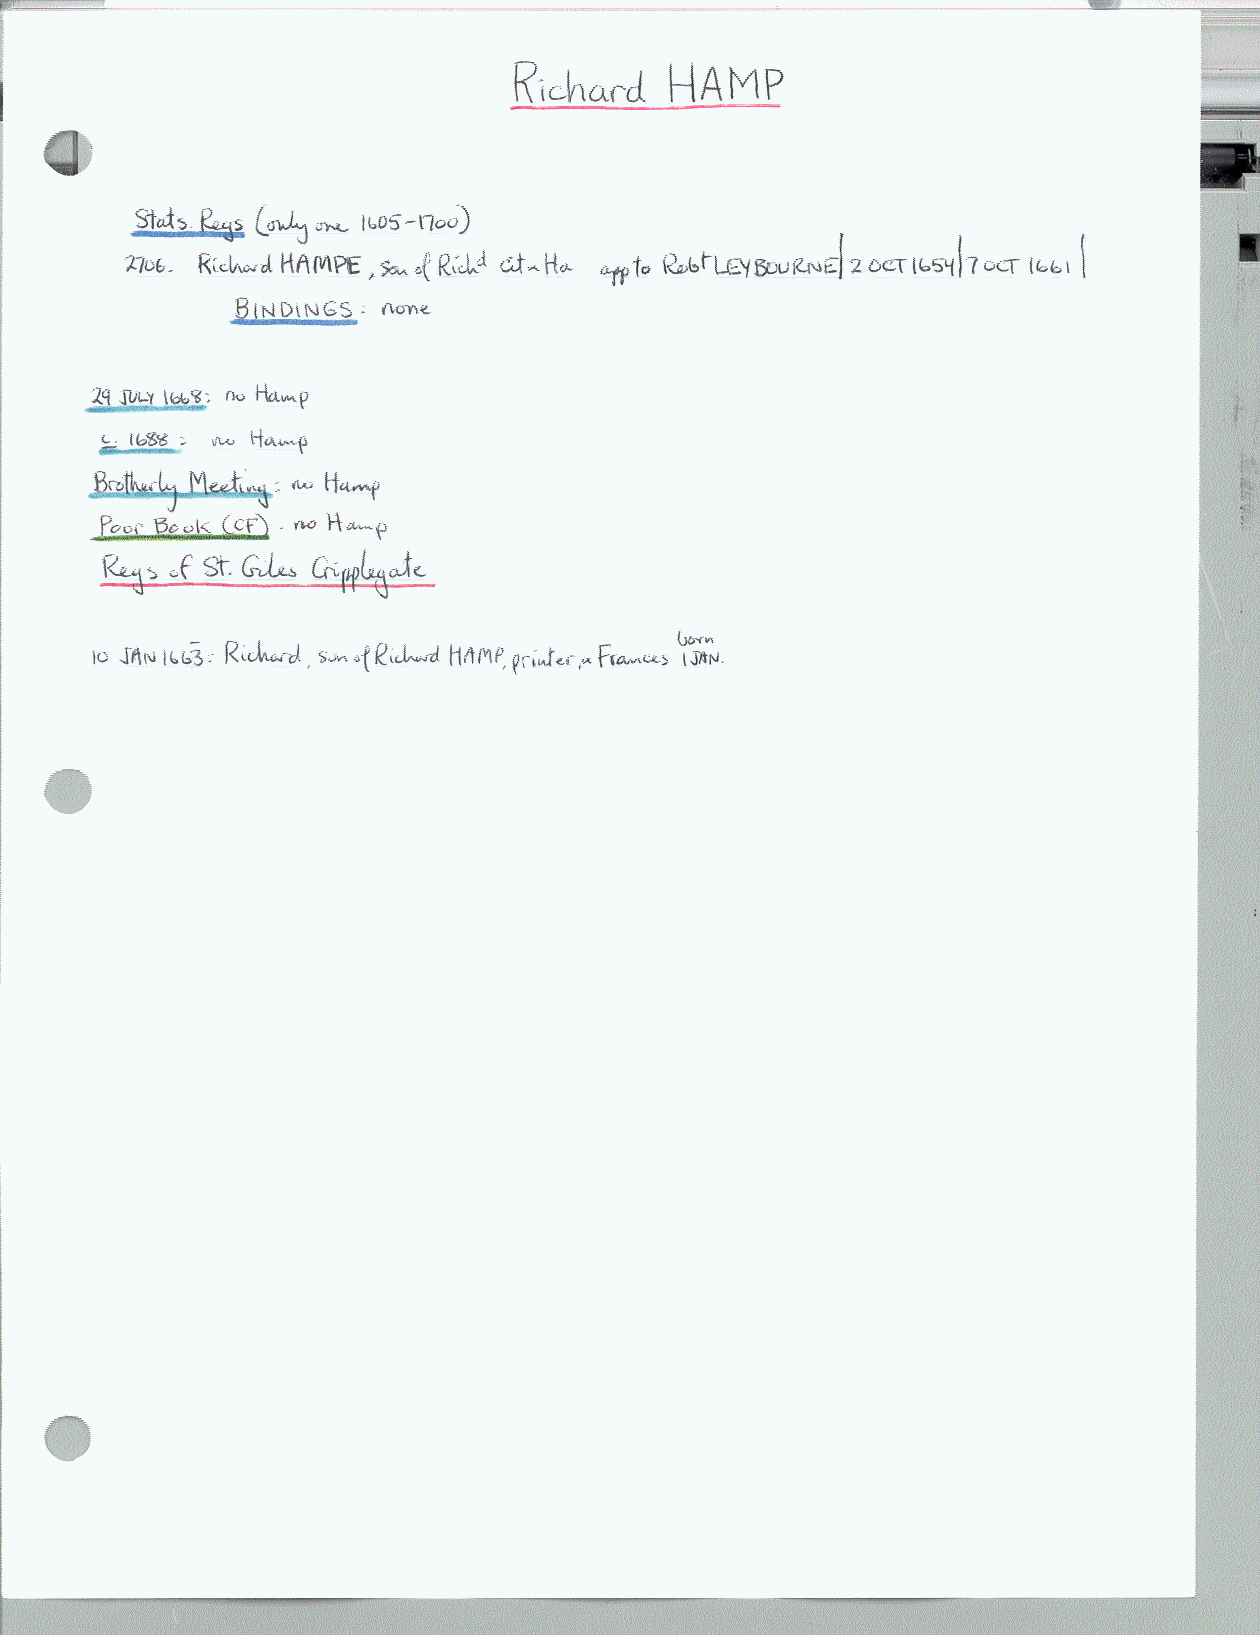 Richard HAMP
Stats. Regs (only one 1605-1700)
2706. Richard HAMPE, son of Rich^d cit & Ha app to Rob^t LEYBOURNE| 2 OCT 1654|7 OCT 1661|
BINDINGS: none
29 JULY 1668: no Hamp
c. 1688: no Hamp
Brotherly Meeting: no Hamp
Poor Book (CF) - no Hamp
Regs of St. Giles Cripplegate
10 JAN 1663: Richard, son of Richard HAMP, printer, & Frances born 1 JAN.